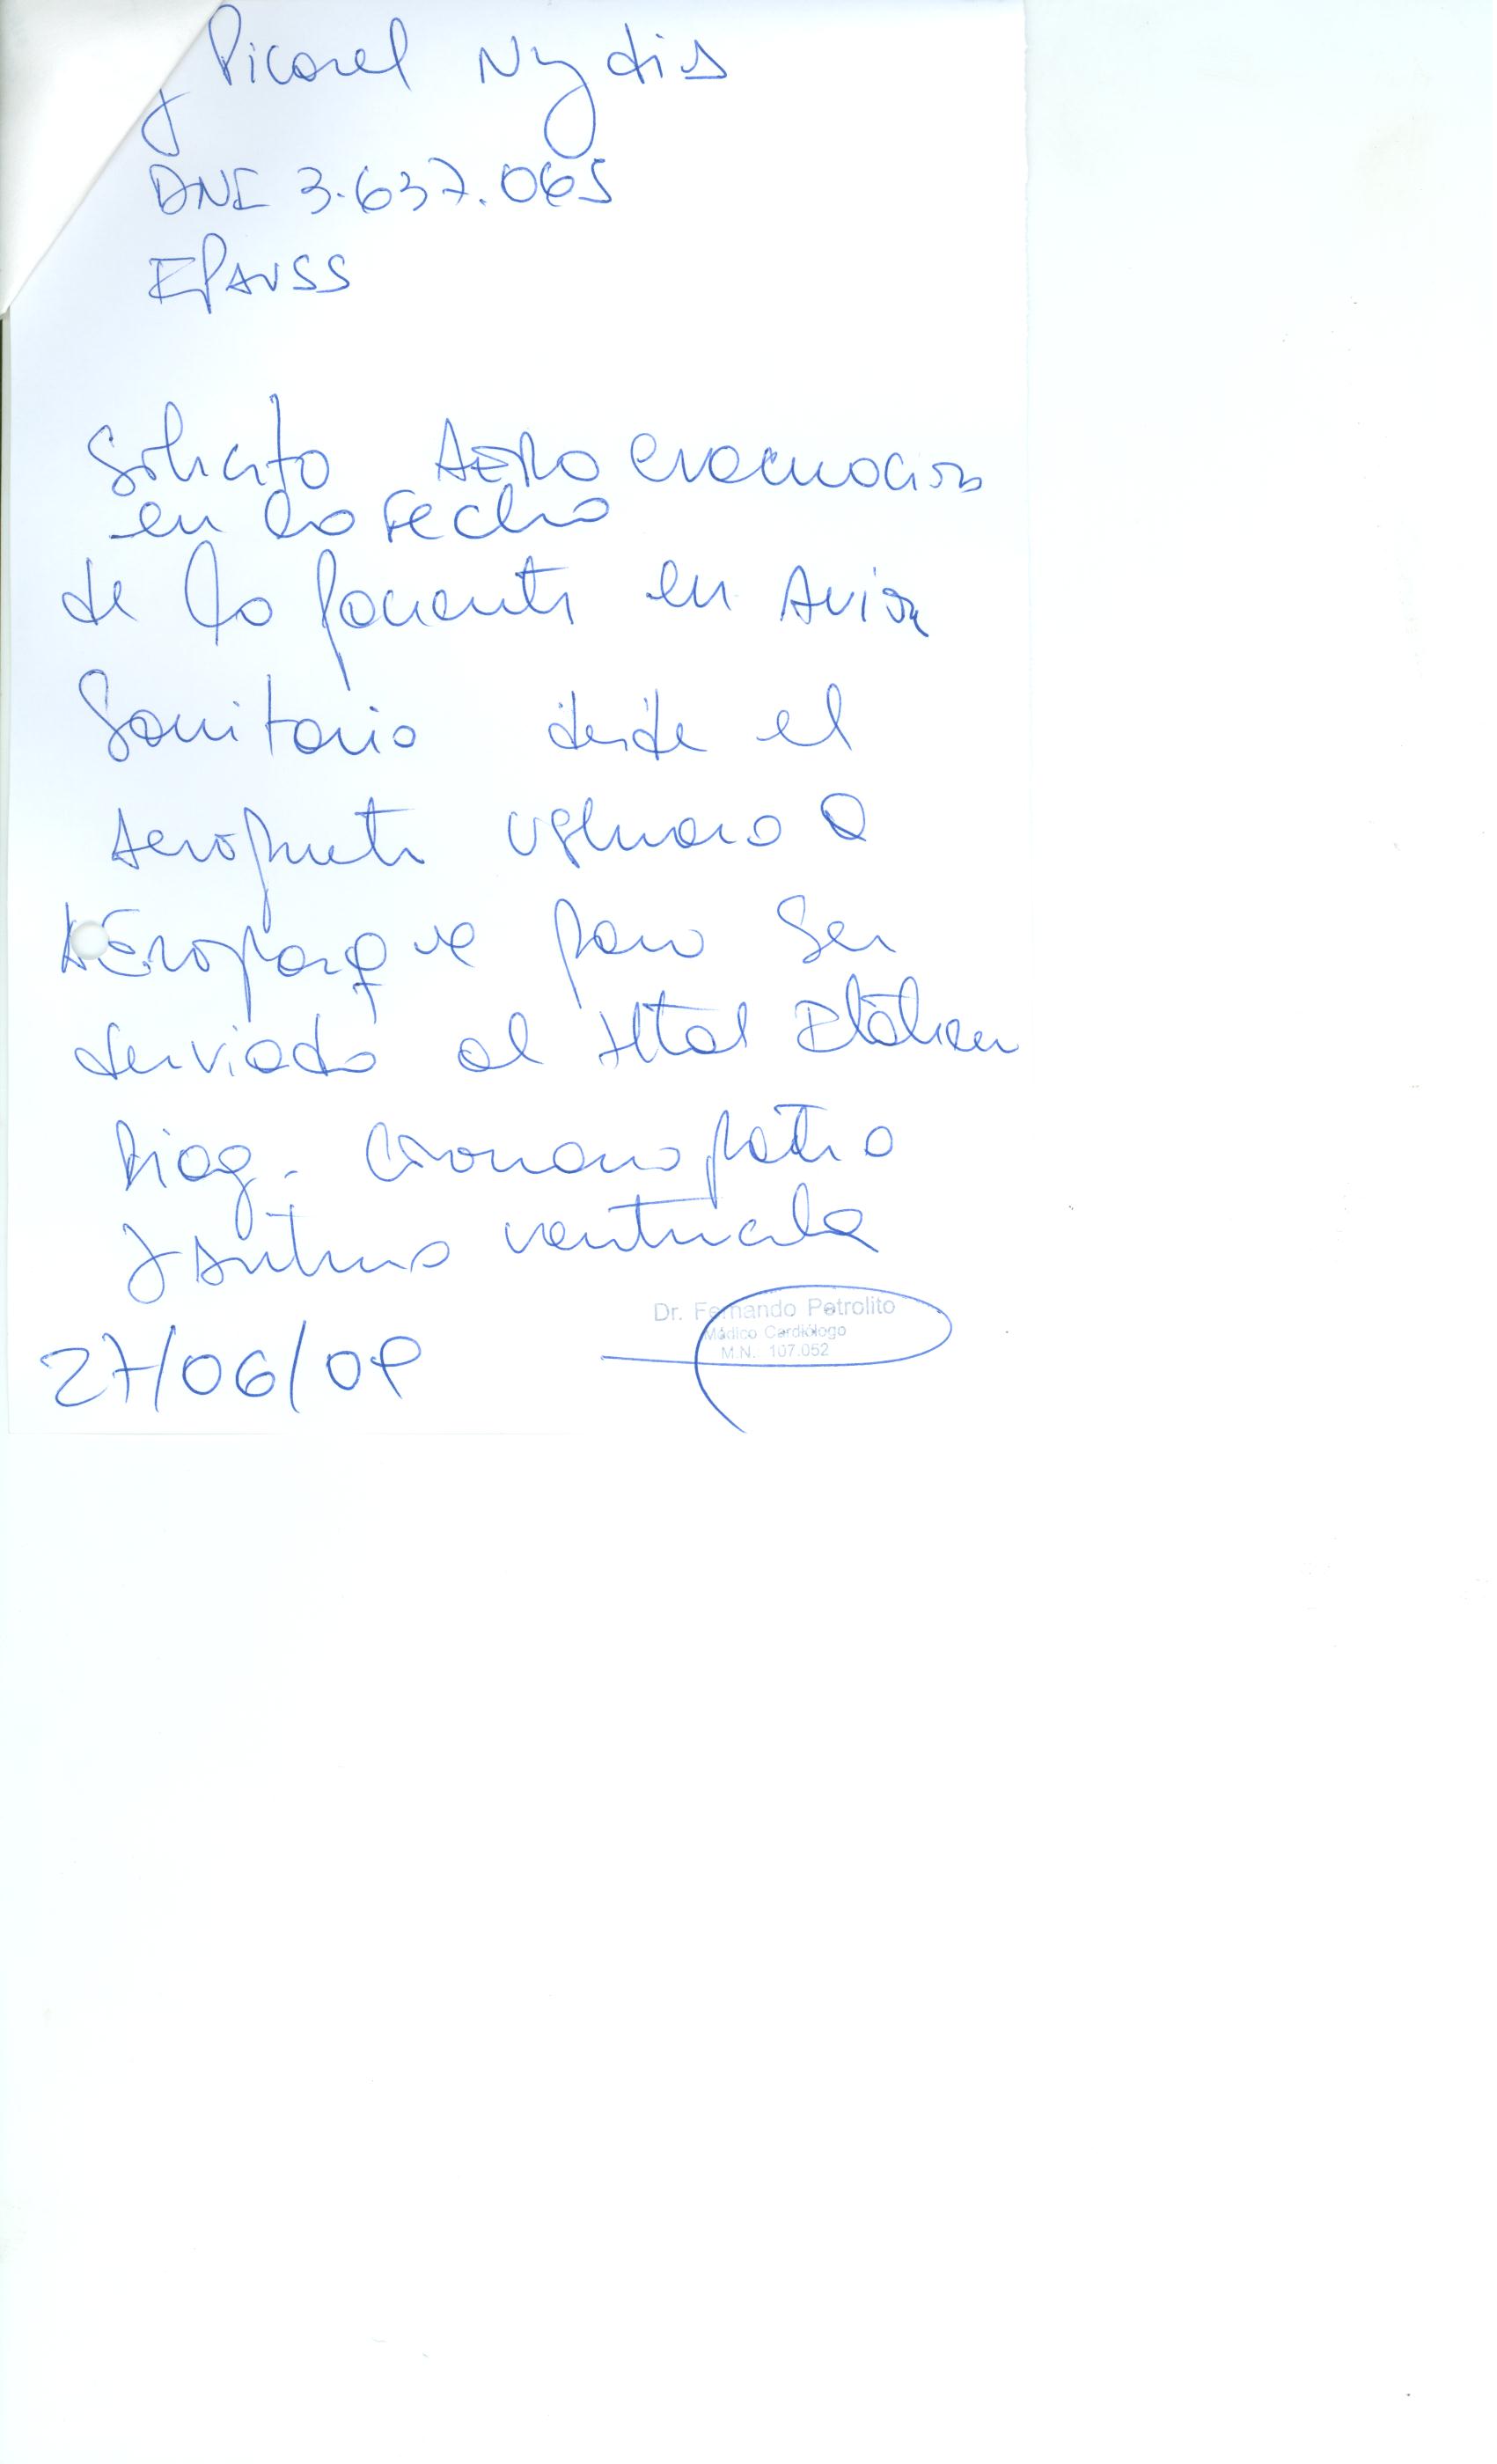 Picarel Nydia
DNI 3.637.065
IPAUSS
Solicito AERO evacuacion
en la Fecha
de la paciente en Avion
Sanitario desde el
Aeropuerto Ushuaia a
AEroparque para ser
derivada al Htal Italiano
Diag. Coronariopatia
y Aritmia ventricular
27/06/08
Dr. Fernando Petrolito
Médico Cardiólogo
M.N. 107.052